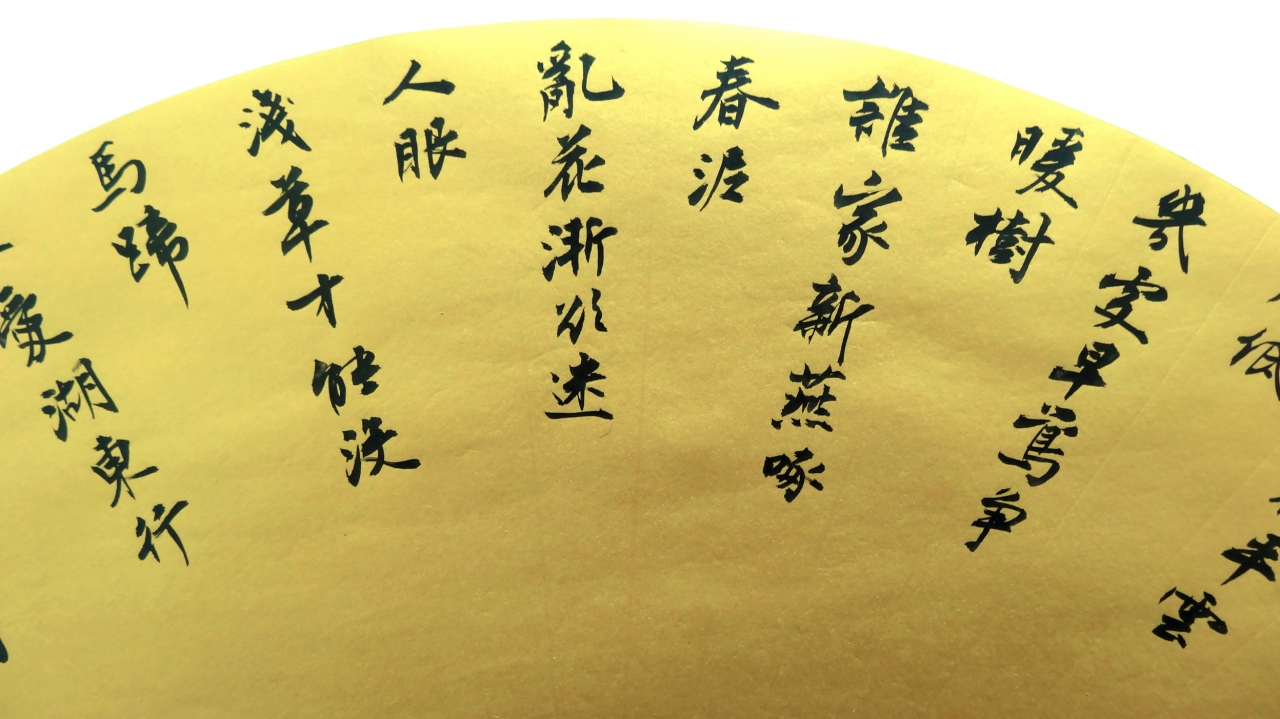 平雲
低
幾處早鶯争
暖樹
誰家新燕啄
春泥
亂花漸欲迷
人眼
淺草才能没
馬蹄
愛湖東行